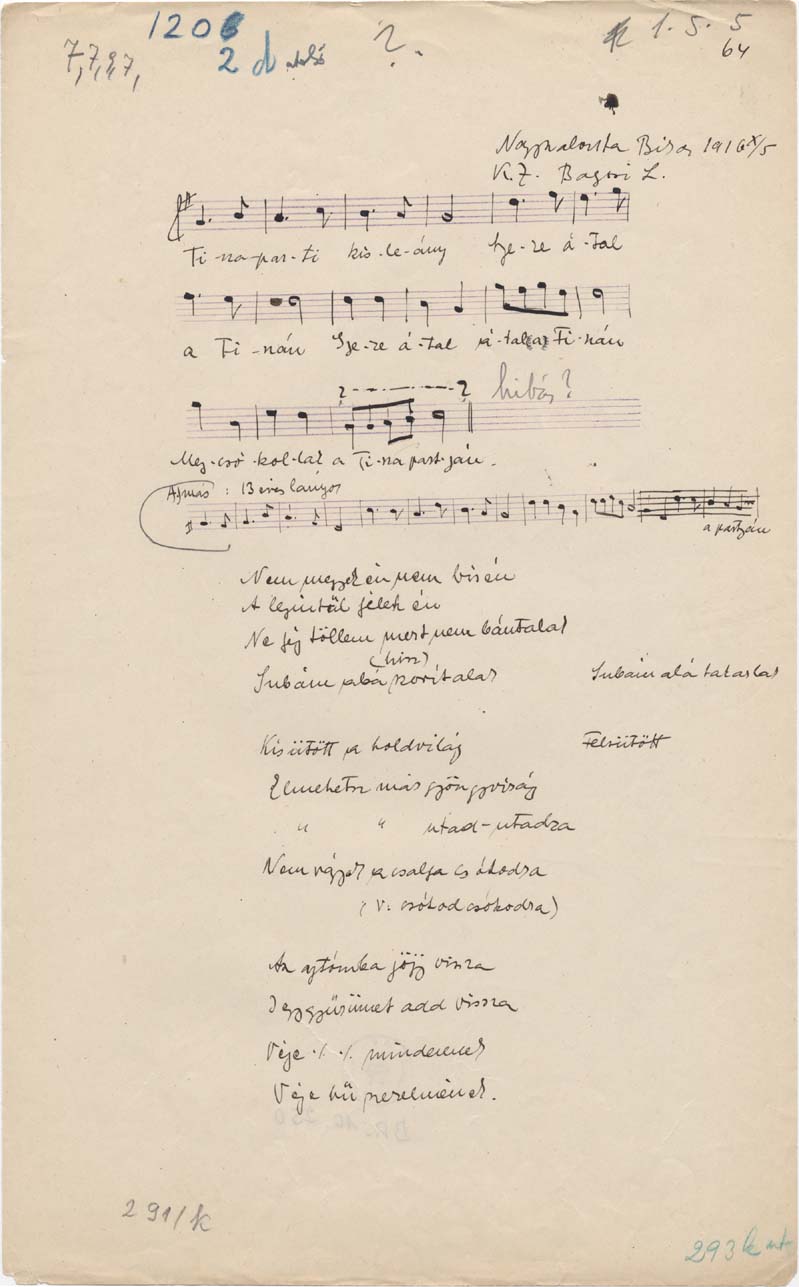 1206
7, 7, 9, 7,
2 d utolsó ?.
1. 5. 5
64
Nagyszalonta Bihar 1916 X/5
K.Z. Bagosi L.
Ti-na-par-ti kis-le-ány sze-re á-tal
a Ti-nán Sze-re á-tal á-tal a Ti-nán
?-·-·-·-? hibás?
Meg-csó-kol-lak a Ti-na part-ján.
A más: 13 éves lányok
a partján
Nem megyek én nem bizén
A legéntűl félek én
Ne féj tőllem mert nem bántalak
(hisz)
Subám alá szorítalak Subám alá takarlak
Kisütött a holdvilág Felsütött
Elmehetsz már gyöngyvirág
" " utad-utadra
Nem vágyok a csalfa csókodra
(v. csókod csókodra)
Az ajtómba jőjj vissza
Jegygyűrűmet add vissza
Vége ·/· ·/· mindennek
Vége hű szerelmének.
291/k
293 k